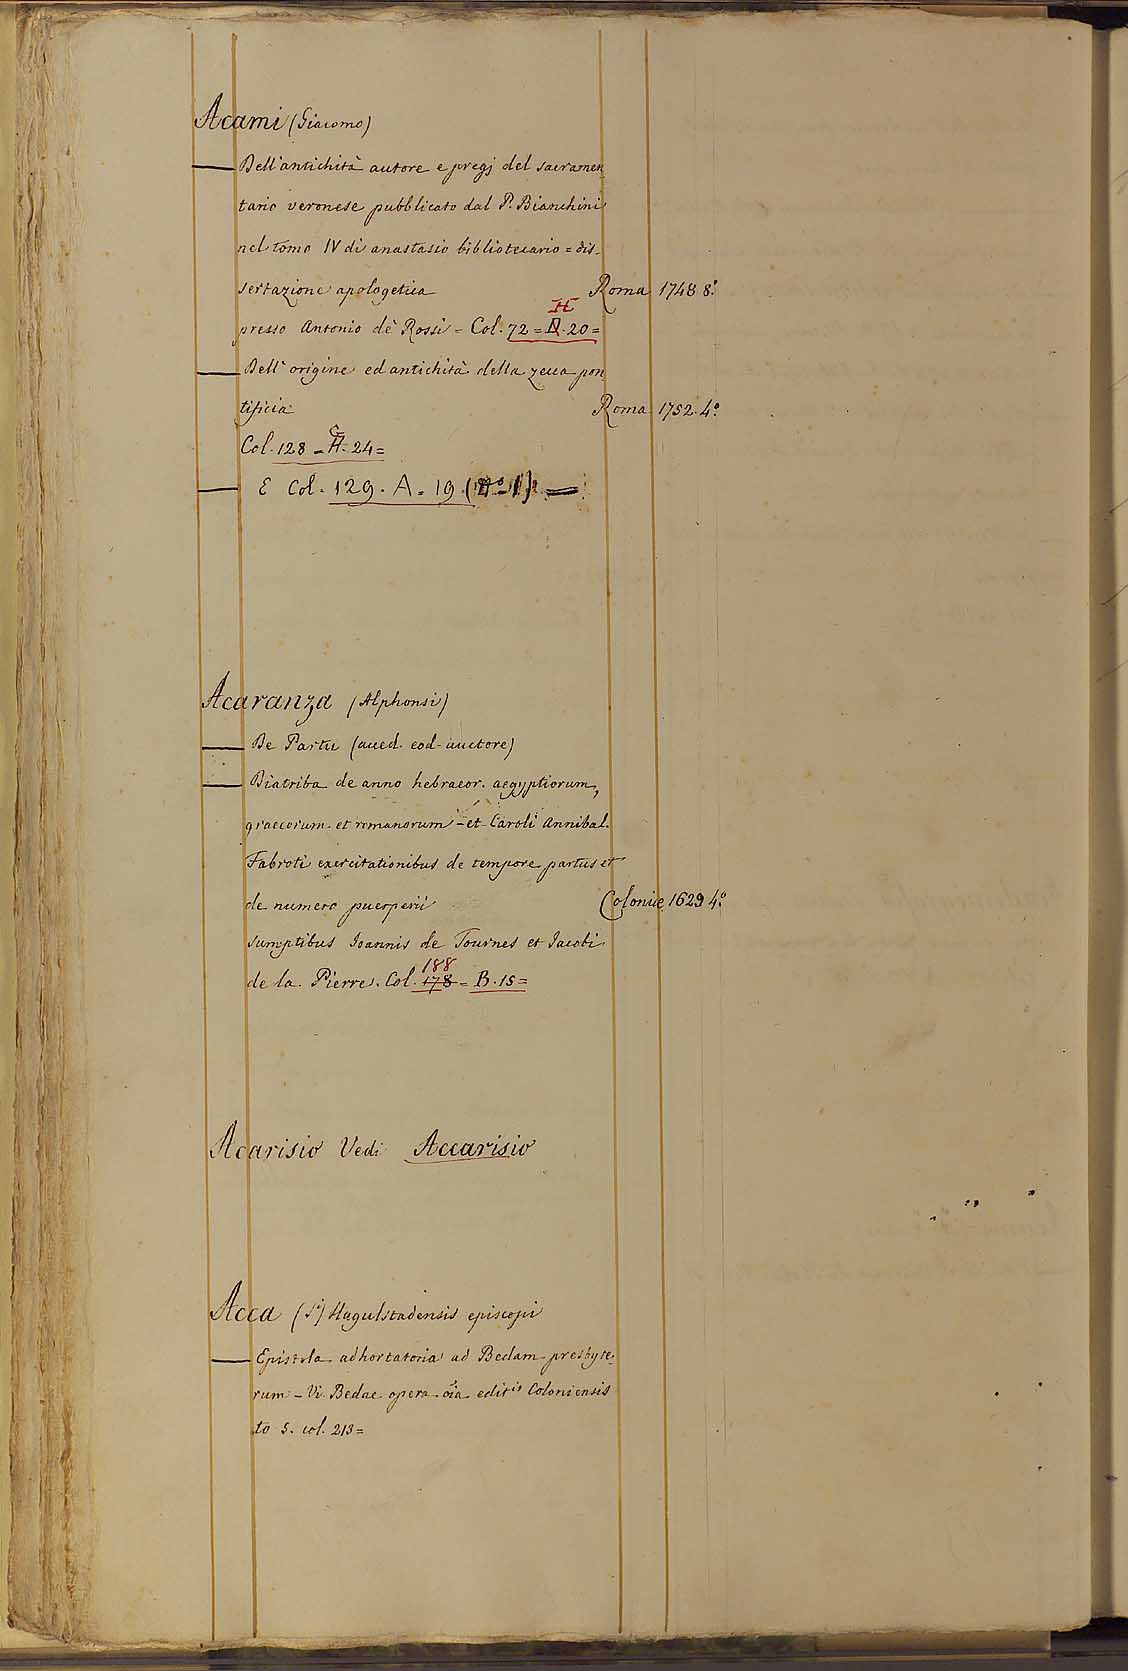 Acami (Giacomo)
— Dell'antichità autore e pregj del sacramen
tario veronese pubblicato dal P. Bianchini
nel tomo IV di anastasio bibliotecario = dis-
sertazione apologetica Roma 1748 8.°
H
presso Antonio de' Rossi = Col. 72 = A. 20 =
— Dell'origine ed antichità della zecca pon
tificia Roma 1752. 4.°
G
Col. 128 - H. 24 =
— E Col. 129. A. 19. (N° 1) —
Acaranza (Alphonsi)
— De Partu (acced. eod. auctore)
— Diatriba de anno hebraeor. aegyptiorum,
graecorum et romanorum - et Caroli Annibal.
Fabroti exercitationibus de tempore partus et
de numero puerperii Coloniae 1629 4.°
sumptibus Joannis de Tournes et Jacobi
188
de la Pierre. Col. 178 = B. 15 =
Acarisio Vedi Accarisio
Acca (S.i) Hagulstadensis episcopi
— Epistola adhortatoria ad Bedam presbyte-
rum - Vi. Bedae opera oia editis Coloniensis
to 5. col. 213 =